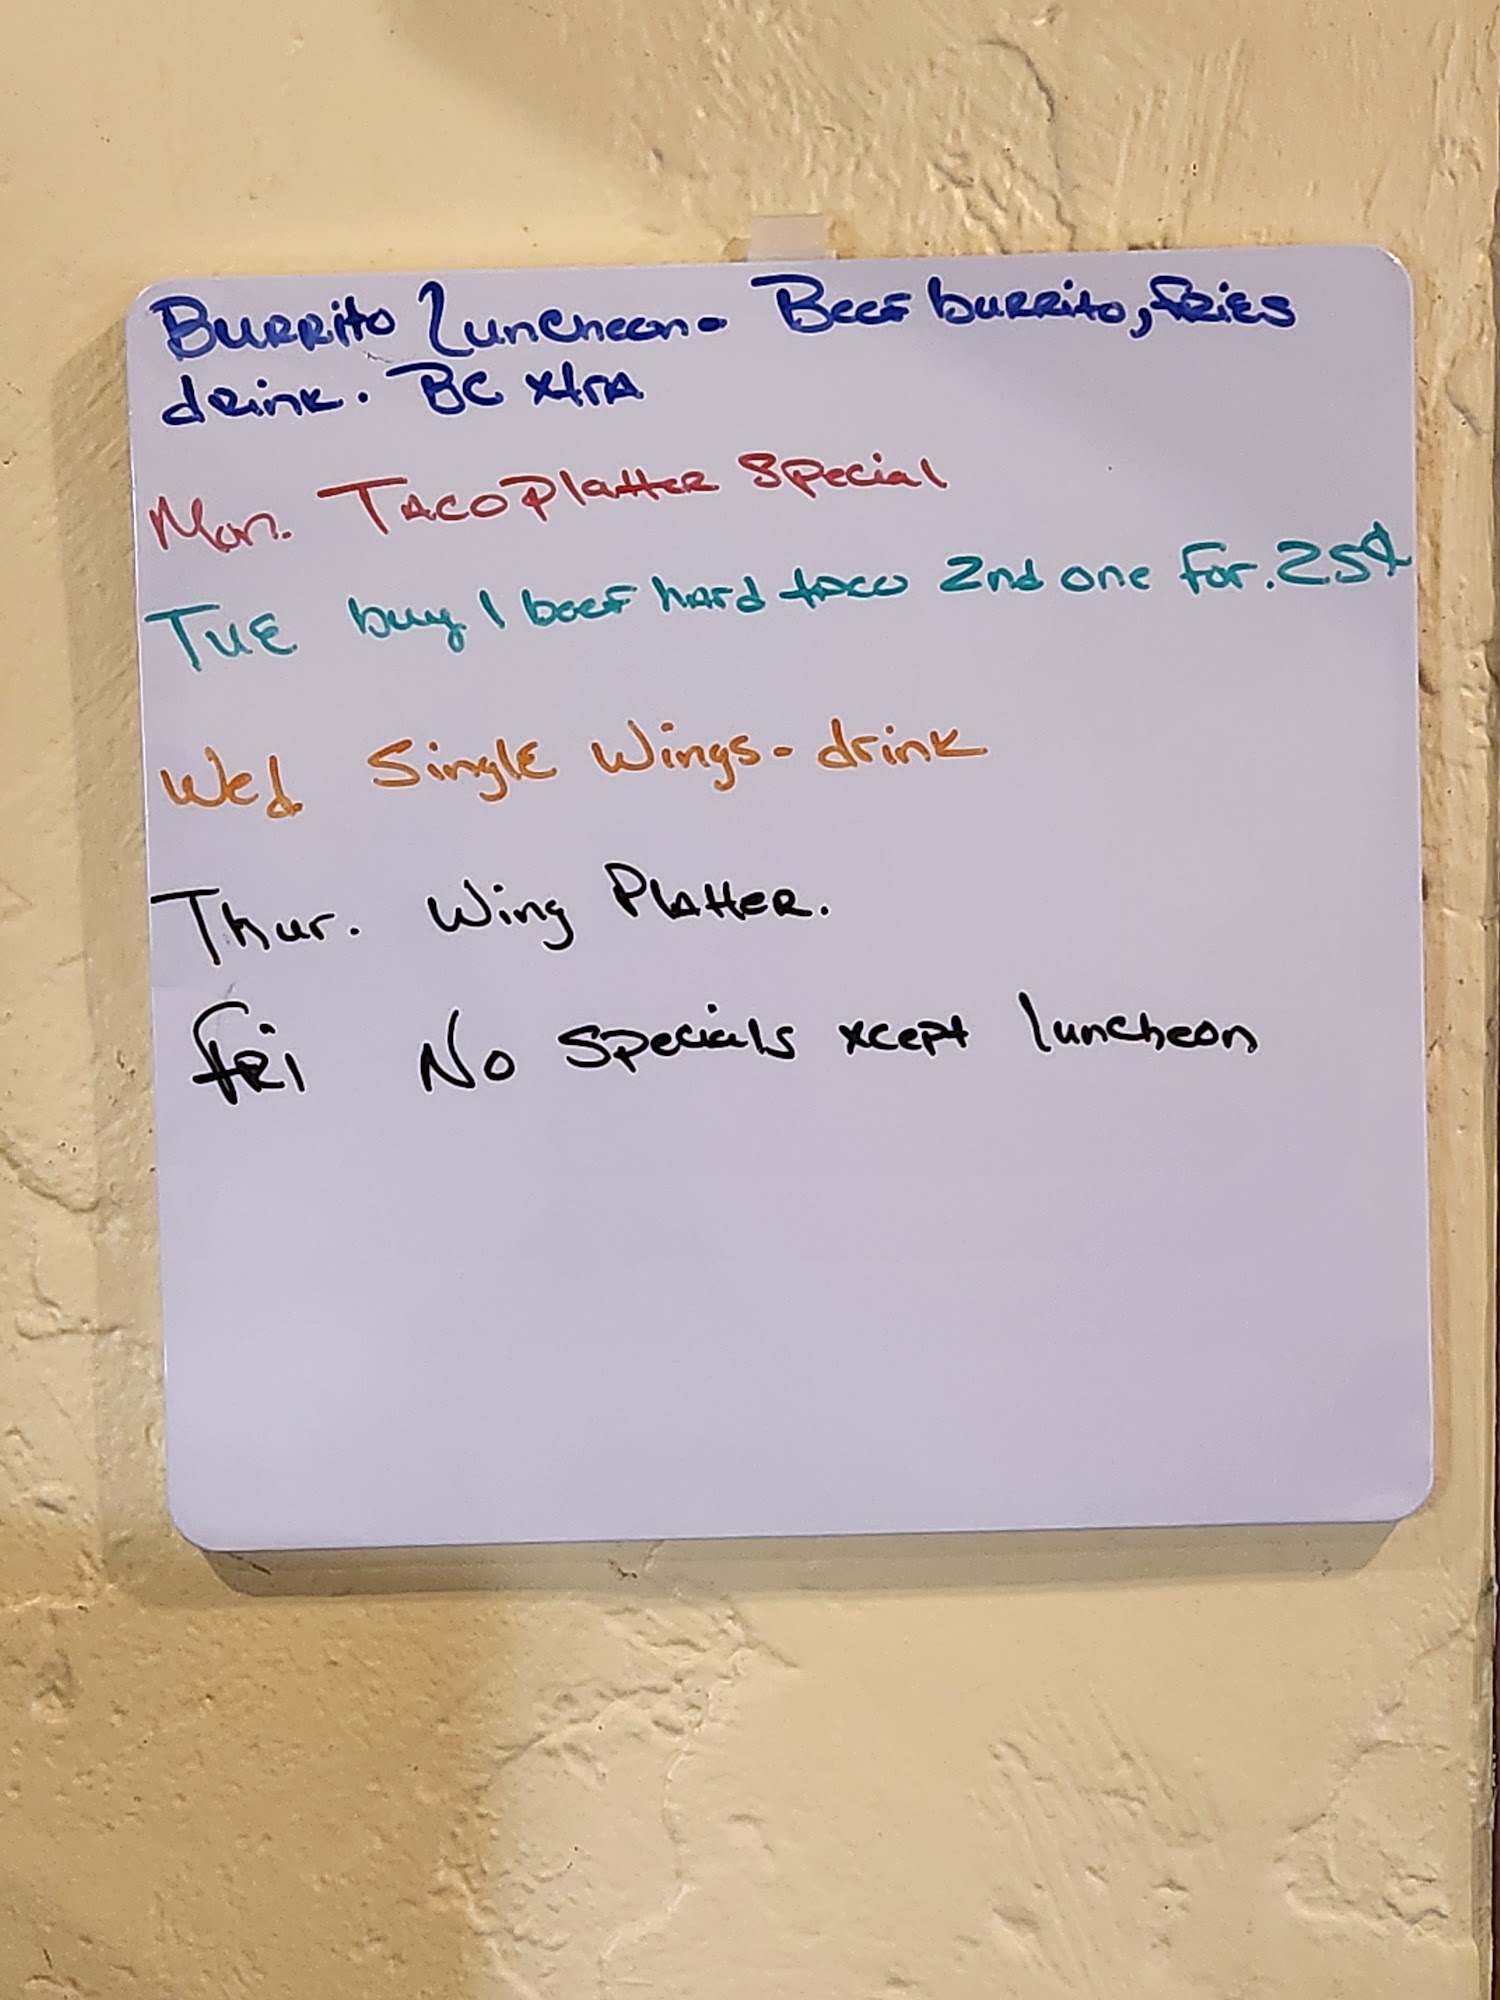 Burrito Luncheon- Beef burrito, fries
drink. BC xtra
Mon. Taco Platter Special
Tue buy 1 beef hard taco 2nd one for .25¢
Wed Single Wings - drink
Thur. Wing Platter.
Fri No Specials xcept luncheon